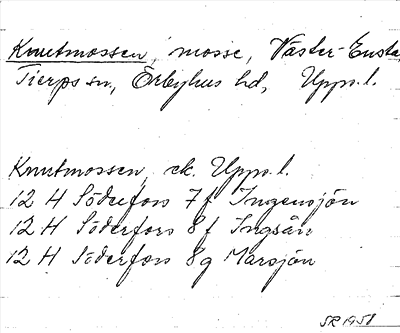 Knutmossen, mosse, Väster-Ensta,
Tierps sn, Örbyhus hd, Upps.l.
Knutmossen, ek. Upps.l.
12 H Söderfors 7f Ingensjön
12 H Söderfors 8f Ingsån
12 H Söderfors 8g Marsjön
SR 1951